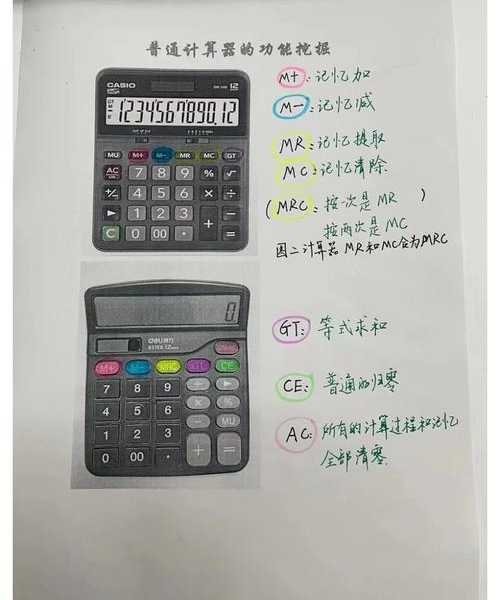 普通计算器的功能挖掘
CASIO
12
1234567890.12
MU M+ M- MR MC GT
AC 7 8 9 % √
+/- 4 5 6 × ÷
▶ 1 2 3 + -
C 0 00 · =
M+: 记忆加
M-: 记忆减
MR: 记忆提取
MC: 记忆清除
(MRC: 按一次是MR )
按两次是MC
图二计算器 MR和MC合为MRC
0
M+ M- MRC GT CE
7 8 9 ÷ ▶
4 5 6 × %
1 2 3 - MU
0 00 · + =
GT: 等式求和
CE: 普通的归零
AC: 所有的计算过程和记忆
全部清零